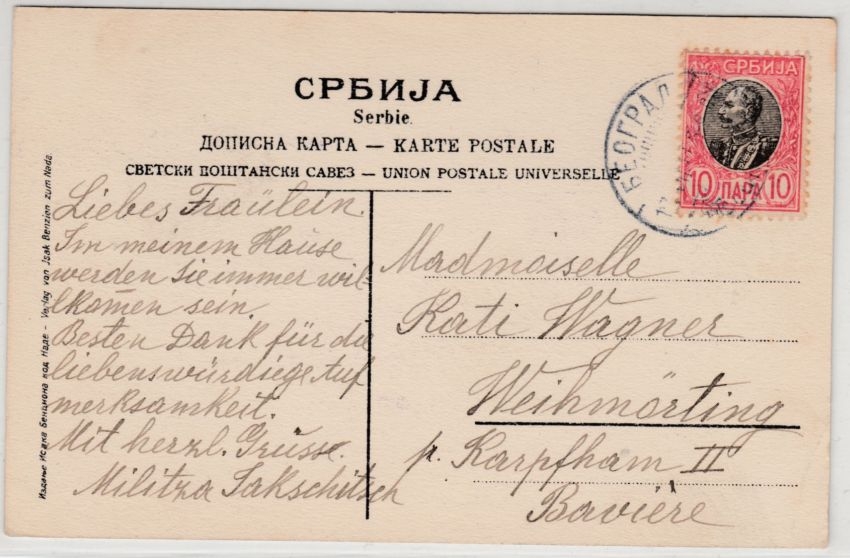 СРБИЈА
Serbie.
ДОПИСНА КАРТА — KARTE POSTALE
СВЕТСКИ ПОШТАНСКИ САВЕЗ — UNION POSTALE UNIVERSELLE
СРБИЈА
10 ПАРА 10
БЕОГРАД
Издање Исака Бенциона код Наде - Verlag von Jsak Benzion zum Nada.
Liebes Fräulein.
Im meinem Hause
werden Sie immer wil-
lkomen sein.
Besten Dank für die
liebenswürdiege Auf
merksamkeit.
Mit herzl. Grüsse.
Militza Jakschitsch
Madmoiselle
Kati Wagner
Weihmörting
p. Karpfham II
Bavière